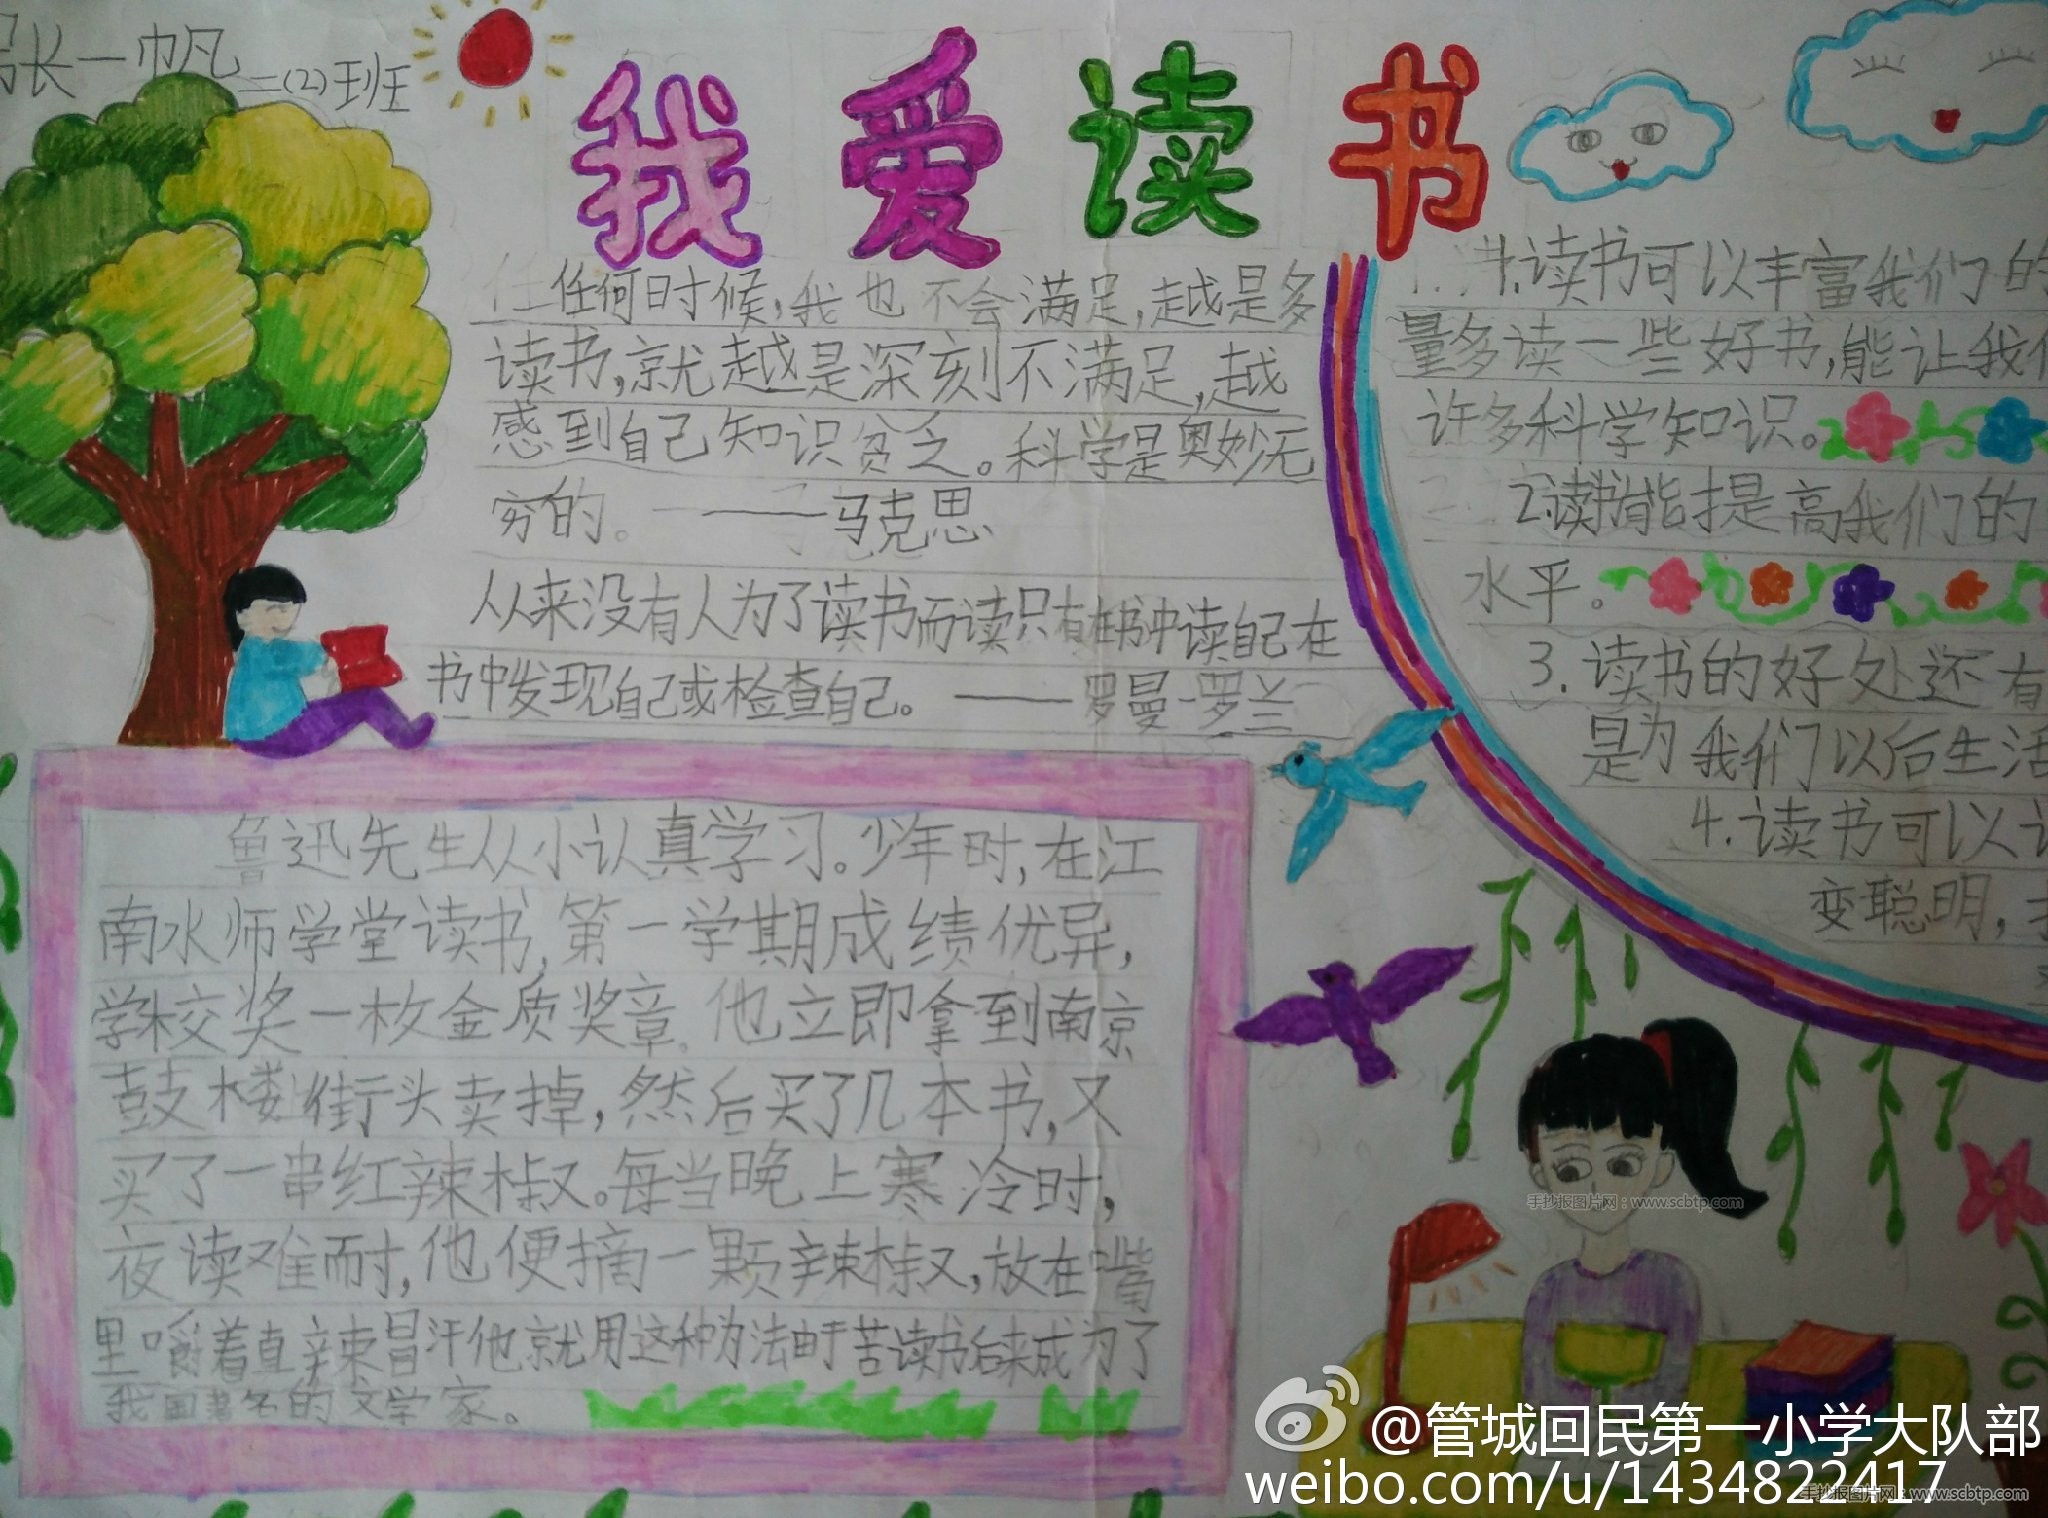 长一帆
二(2)班
我爱读书
任何时候,我也不会满足,越是多
读书,就越是深刻不满足,越
感到自己知识贫乏。科学是奥妙无
穷的。——马克思
从来没有人为了读书而读只有在书中读自己在
书中发现自己或检查自己。——罗曼·罗兰
1.读书可以丰富我们的
量多读一些好书,能让我们
许多科学知识。
2.读书能提高我们的
水平。
3.读书的好处还有
是为我们以后生活
4.读书可以让
变聪明,
鲁迅先生从小认真学习。少年时,在江
南水师学堂读书,第一学期成绩优异,
学校奖一枚金质奖章。他立即拿到南京
鼓楼街头卖掉,然后买了几本书,又
买了一串红辣椒。每当晚上寒冷时,
夜读难耐,他便摘一颗辣椒,放在嘴
里嚼着直辣冒汗他就用这种方法由于苦读书后来成为了
我国著名的文学家。
手抄报图片网：www.scbtp.com
@管城回民第一小学大队部
weibo.com/u/1434822417
手抄报图片网：www.scbtp.com